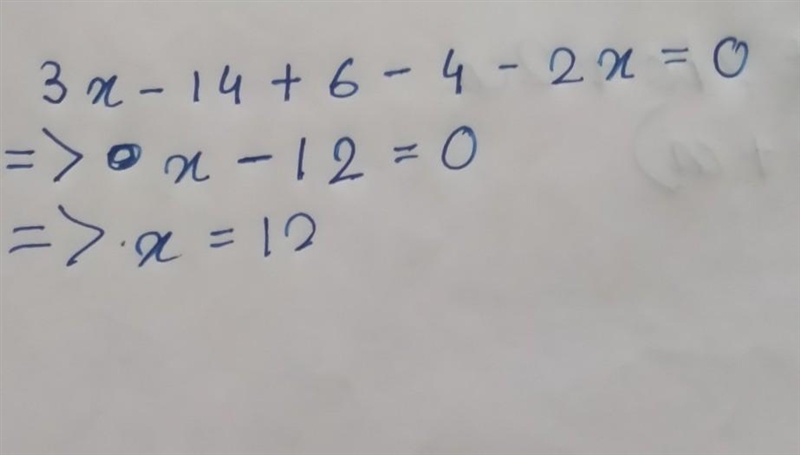 3x - 14 + 6 - 4 - 2x = 0
=> x - 12 = 0
=> x = 12